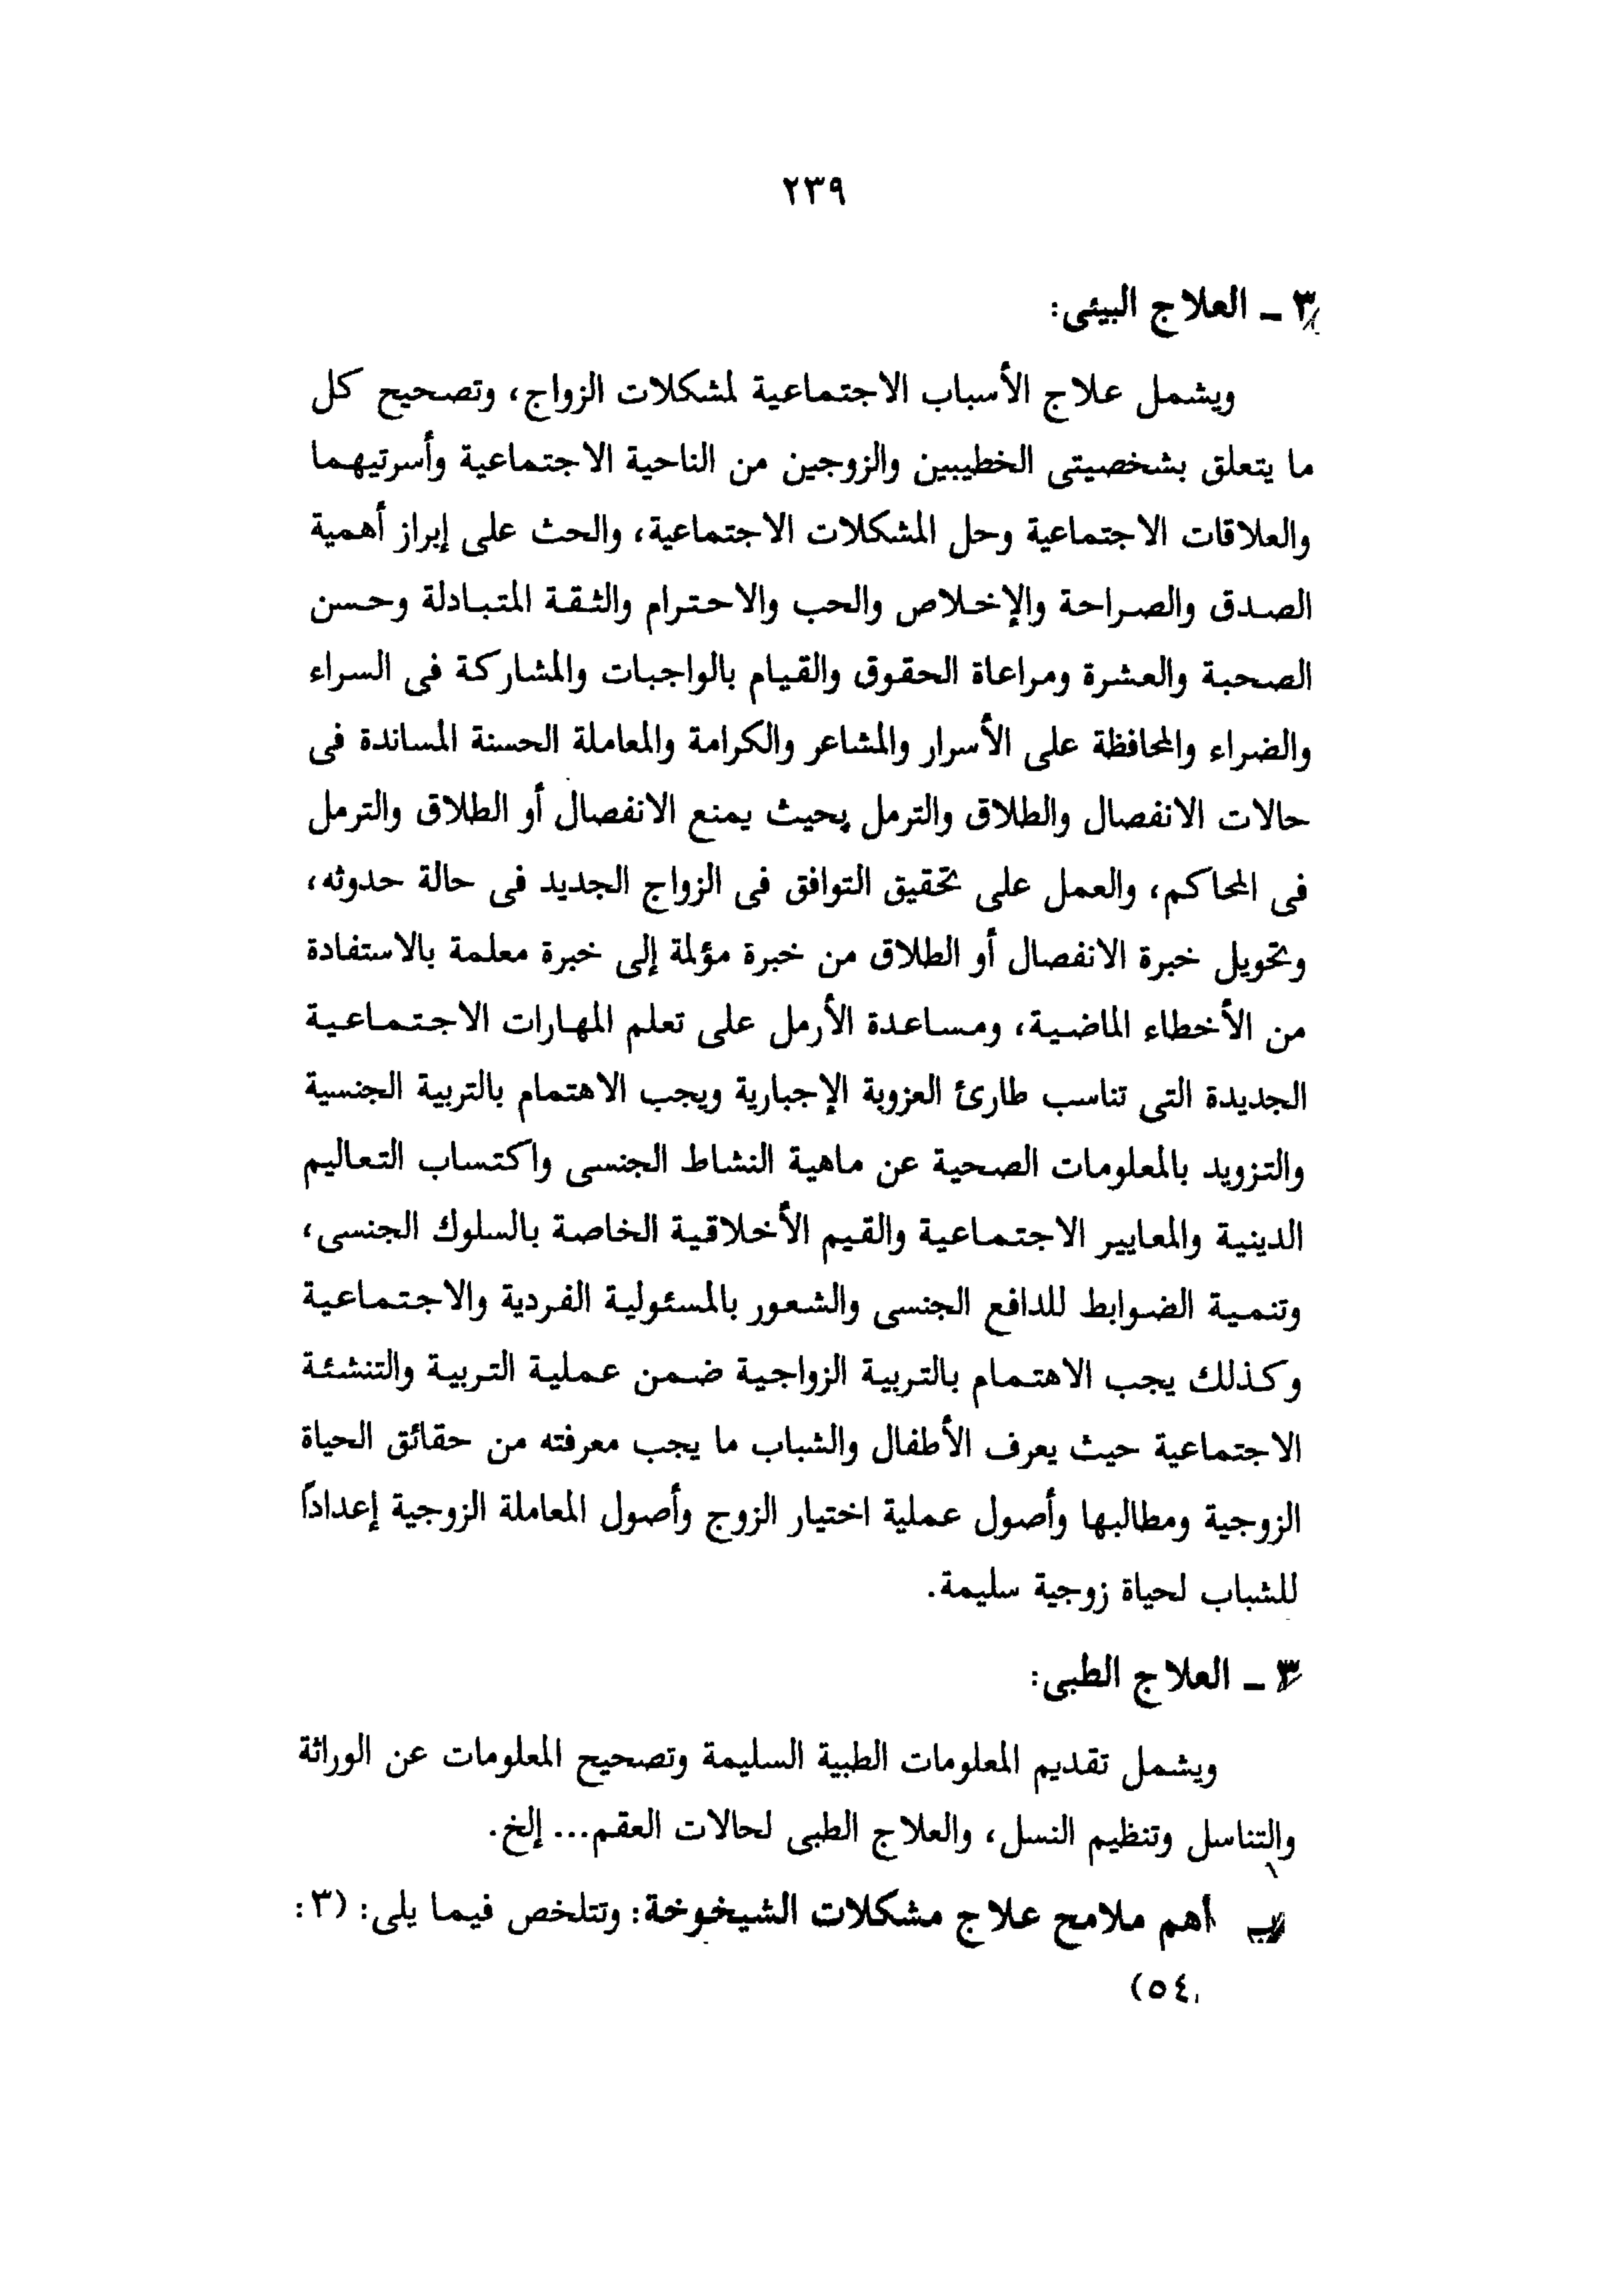 ٢٣٩
٣ - العلاج البيئى:
ويشمل علاج الأسباب الاجتماعية لمشكلات الزواج، وتصحيح كل
ما يتعلق بشخصيتى الخطيبين والزوجين من الناحية الاجتماعية وأسرتيهما
والعلاقات الاجتماعية وحل المشكلات الاجتماعية، والحث على إبراز أهمية
الصدق والصراحة والإخلاص والحب والاحترام والثقة المتبادلة وحسن
الصحبة والعشرة ومراعاة الحقوق والقيام بالواجبات والمشاركة فى السراء
والضراء والمحافظة على الأسرار والمشاعر والكرامة والمعاملة الحسنة المساندة فى
حالات الانفصال والطلاق والترمل بحيث يمنع الانفصال أو الطلاق والترمل
فى المحاكم، والعمل على تحقيق التوافق فى الزواج الجديد فى حالة حدوثه،
وتحويل خبرة الانفصال أو الطلاق من خبرة مؤلمة إلى خبرة معلمة بالاستفادة
من الأخطاء الماضية، ومساعدة الأرمل على تعلم المهارات الاجتماعية
الجديدة التى تناسب طارئ العزوبة الإجبارية ويجب الاهتمام بالتربية الجنسية
والتزويد بالمعلومات الصحية عن ماهية النشاط الجنسى واكتساب التعاليم
الدينية والمعايير الاجتماعية والقيم الأخلاقية الخاصة بالسلوك الجنسى،
وتنمية الضوابط للدافع الجنسى والشعور بالمسئولية الفردية والاجتماعية
وكذلك يجب الاهتمام بالتربية الزواجية ضمن عملية التربية والتنشئة
الاجتماعية حيث يعرف الأطفال والشباب ما يجب معرفته من حقائق الحياة
الزوجية ومطالبها وأصول عملية اختيار الزوج وأصول المعاملة الزوجية إعداداً
للشباب لحياة زوجية سليمة.
٣ - العلاج الطبى:
ويشمل تقديم المعلومات الطبية السليمة وتصحيح المعلومات عن الوراثة
والتناسل وتنظيم النسل، والعلاج الطبى لحالات العقم... إلخ.
أهم ملامح علاج مشكلات الشيخوخة: وتتلخص فيما يلى: (٣:
٥٤)